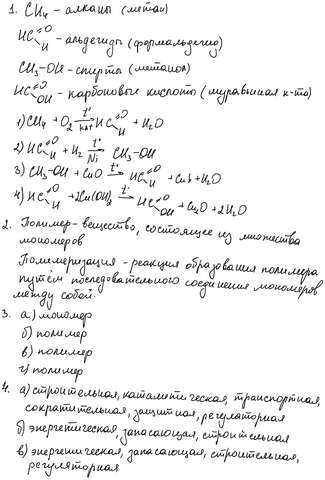 1. CH4 - алканы (метан)
HC=O H - альдегиды (формальдегид)
CH3-OH - спирты (метанол)
HC=O OH - карбоновые кислоты (муравьиная к-та)
1) CH4 + O2 t° кат HC=O H + H2O
2) HC=O H + H2 t° Ni CH3-OH
3) CH3-OH + CuO t° HC=O H + Cu↓ + H2O
4) HC=O H + 2Cu(OH)2 t° HC=O OH + Cu2O + 2H2O
2. Полимер - вещество, состоящее из множества
мономеров
Полимеризация - реакция образования полимера
путём последовательного соединения мономеров
между собой.
3. а) мономер
б) полимер
в) полимер
г) полимер
4. а) строительная, каталитическая, транспортная,
сократительная, защитная, регуляторная
б) энергетическая, запасающая, строительная
в) энергетическая, запасающая, строительная,
регуляторная